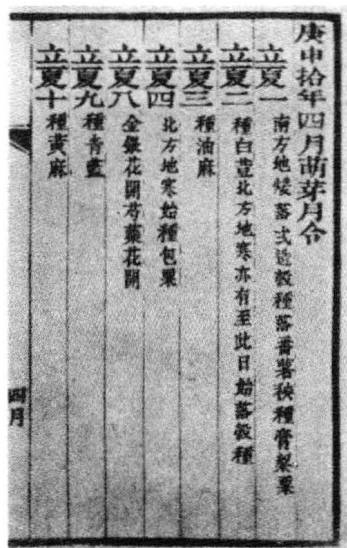 庚申拾年四月萌芽月令
立夏一 南方地煖落弍造穀種落番薯秧種膏粱粟
立夏二 種白荳北方地寒亦有至此日始落穀種
立夏三 種油麻
立夏四 北方地寒始種包粟
立夏八 金銀花開芍藥花開
立夏九 種青藍
立夏十 種黃麻
四月